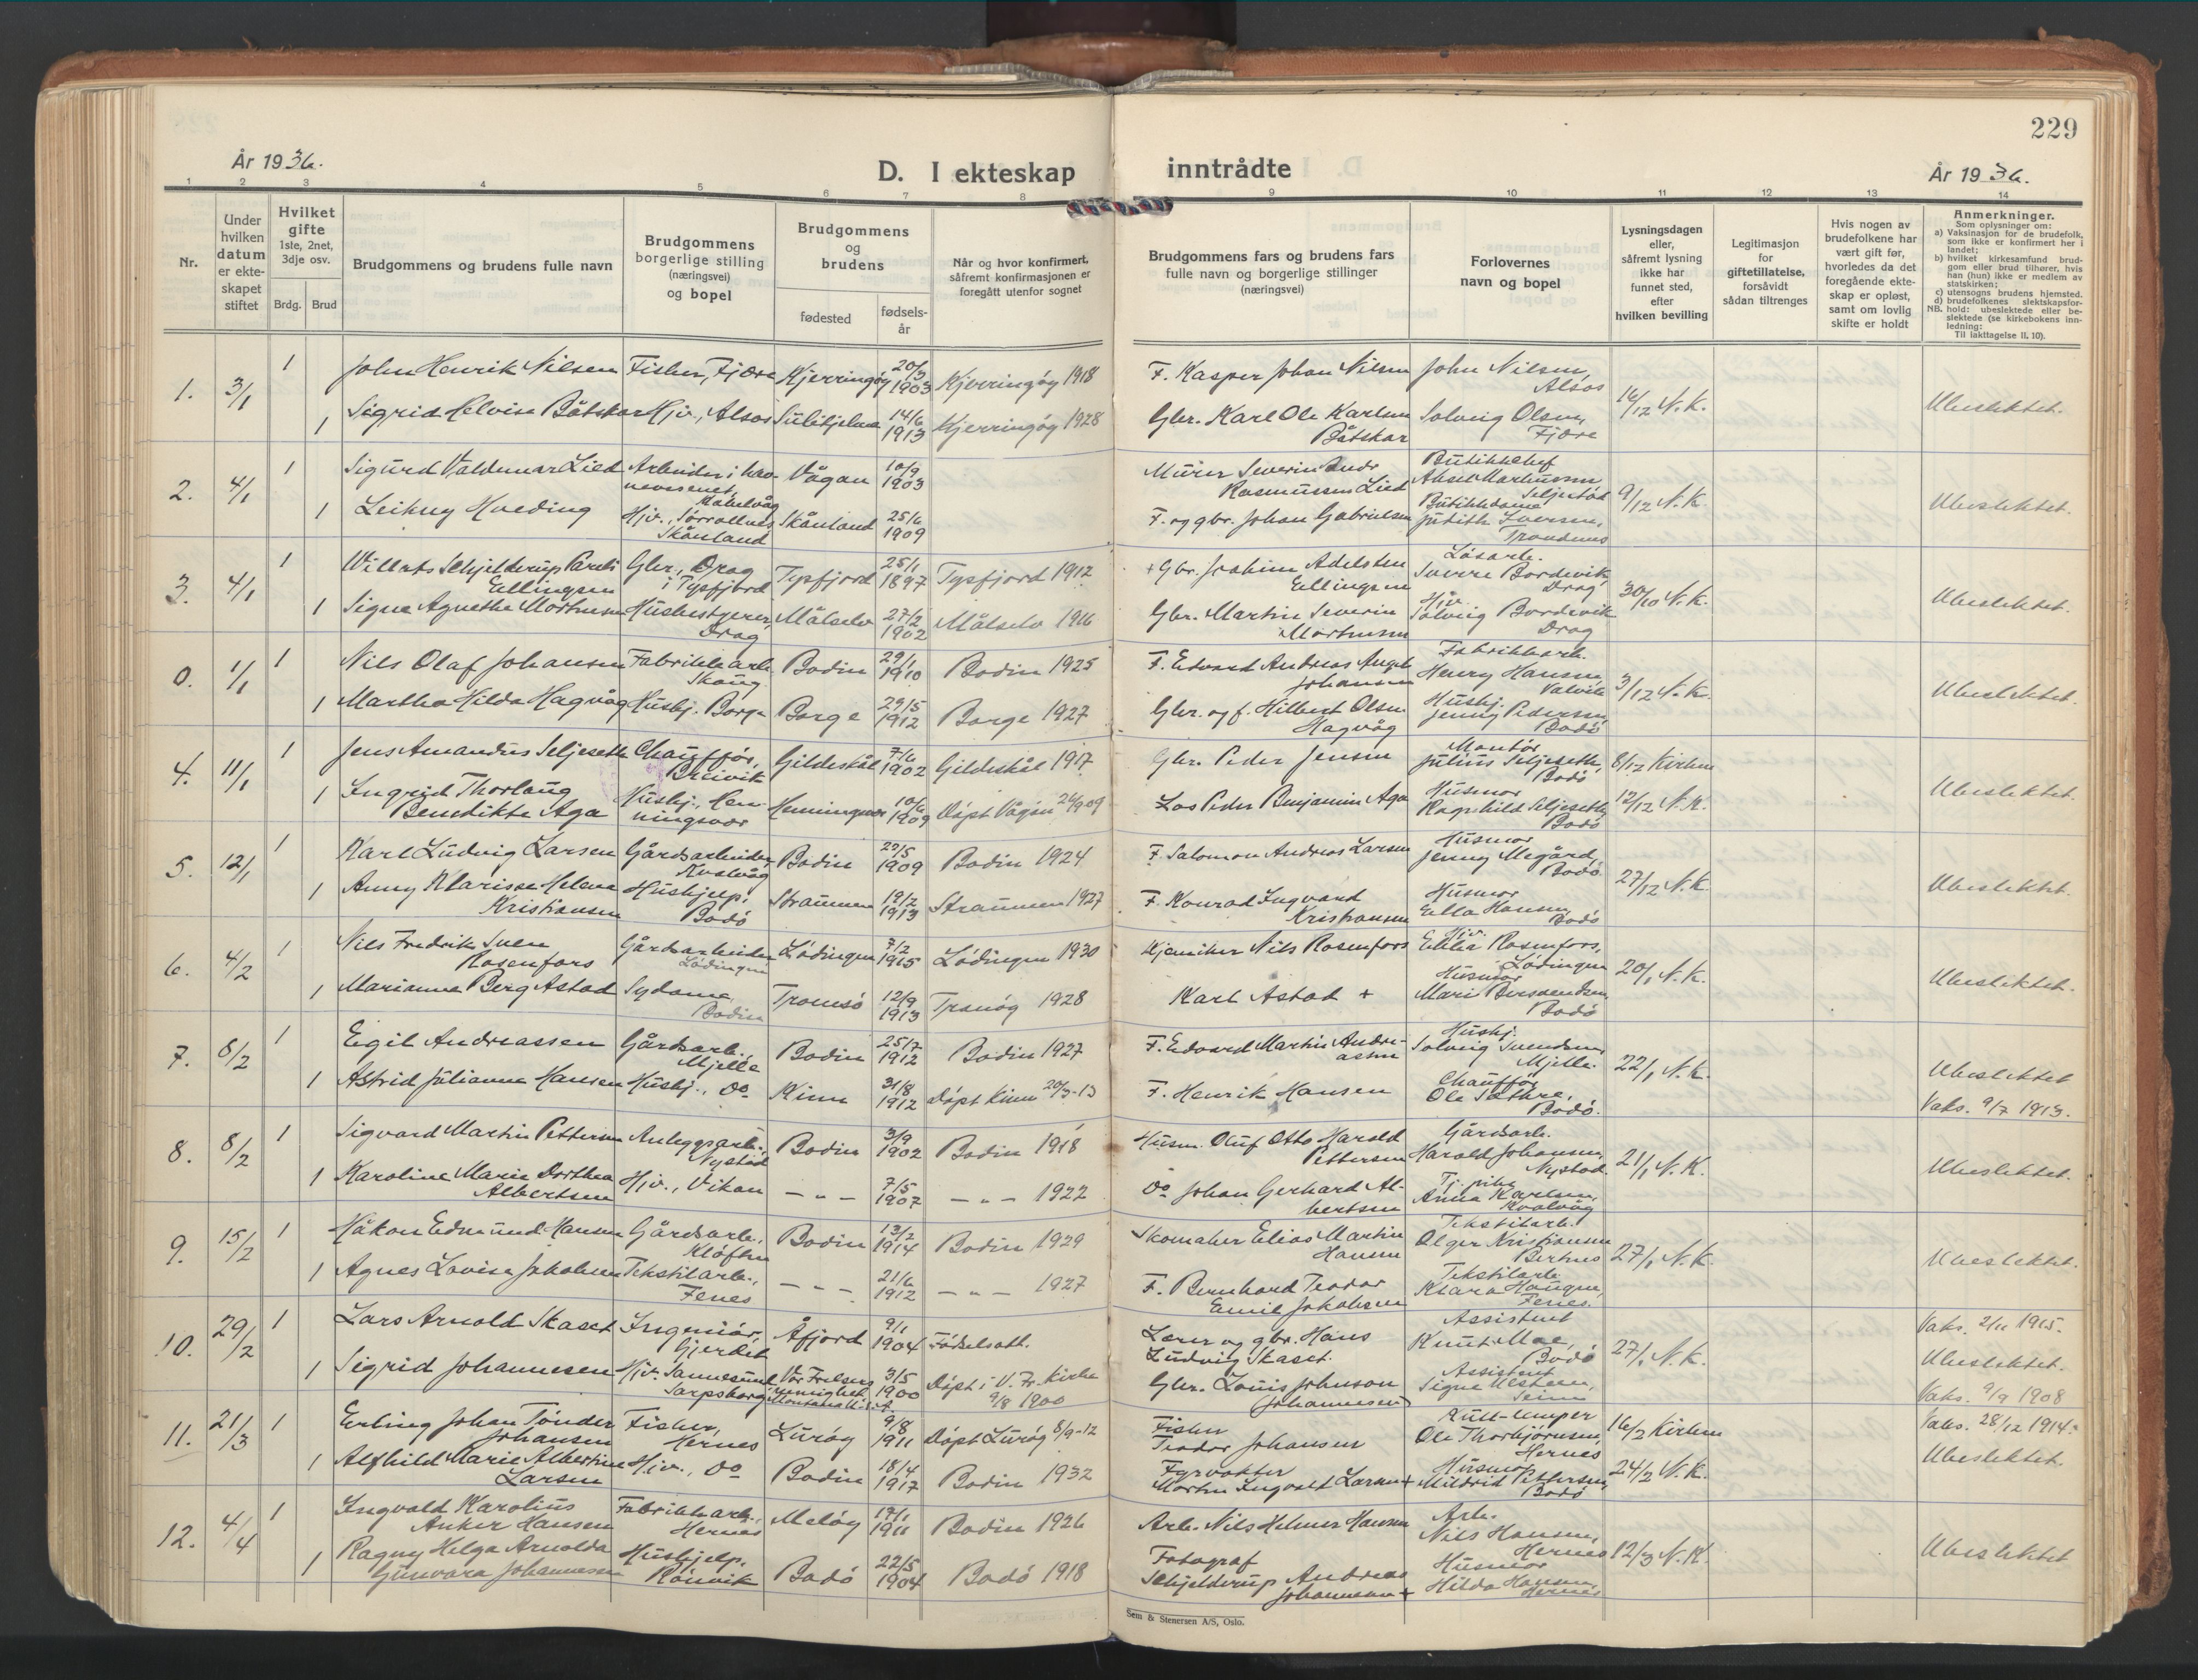 229
År 1936.
D. I ekteskap inntrådte
År 1936.
1 2 3 4 5 6 7 8 9 10 11 12 13 14
Nr.
Under hvilken datum er ekteskapet stiftet
Hvilket gifte
1ste, 2net, 3dje osv.
Brdg. Brud
Brudgommens og brudens fulle navn
Brudgommens borgerlige stilling (næringsvei) og bopel
Brudgommens og brudens
fødested
fødsels-år
Når og hvor konfirmert, såfremt konfirmasjonen er foregått utenfor sognet
Brudgommens fars og brudens fars fulle navn og borgerlige stillinger (næringsvei)
Forlovernes navn og bopel
Lysningsdagen eller, såfremt lysning ikke har funnet sted, efter hvilken bevilling
Legitimasjon for giftetillatelse, forsåvidt sådan tiltrenges
Hvis nogen av brudefolkene har vært gift før, hvorledes da det foregående ekteskap er opløst, samt om lovlig skifte er holdt
Anmerkninger.
Som oplysninger om:
a) Vaksinasjon for de brudefolk, som ikke er konfirmert her i landet;
b) hvilket kirkesamfund brudgom eller brud tilhører, hvis han (hun) ikke er medlem av statskirken;
c) utensogns brudens hjemsted.
d) brudefolkenes slektskapsforhold: ubeslektede eller beslektede (se kirkebokens innledning:
NB.
Til iakttagelse II. 10).
1. 3/1 1 John Henrik Nilsen Fisker, Fjære Kjerringøy 20/3 1903 Kjerringøy 1918 F. Kasper Johan Nilsen John Nilsen, Alsos 16/12 N.K. Ubeslektet.
1 Sigrid Helvise Båtskar Hjv., Alsos Sulitjelma 14/6 1913 Kjerringøy 1928 Gbr. Karl Ole Karlsen Båtskar Solveig Olsen, Fjære
2. 4/1 1 Sigurd Valdemar Lied Arbeider i havnevesenet, Kabelvåg Vågan 10/9 1903 Murer Severin Andr Rasmussen Lied Butikkchef Aksel Markussen Seljestad 9/12 N.K. Ubeslektet.
1 Leikny Hveding Hjv., Sørrollnes Skånland Skånland 25/6 1909 F. og gbr. Johan Gabrielsen Butikkdame Judith Iversen, Trondenes
3. 4/1 1 Willats Schjelderup Pareli Ellingsen Gbr., Drag i Tysfjord Tysfjord 25/1 1897 Tysfjord 1912 + Gbr. Joakim Adelsten Ellingsen Løsarb. Sverre Bordevik, Drag 30/10 N.K. Ubeslektet.
1 Signe Agnethe Mortensen Husbestyrer, Drag Målselv 27/2 1902 Målselv 1916 Gbr. Martin Severin Mortensen Hjv. Solveig Bordevik Drag
0. 1/1 1 Nils Olaf Johansen Fabrikkarb. Skaug Bodin 29/1 1910 Bodin 1925 F. Edvard Andreas Angel Johansen Fabrikkarb. Henry Hansen, Valvik 3/12 N.K. Ubeslektet.
1 Martha Hilda Hagvåg Hushj. Borge Borge 29/5 1912 Borge 1927 Gbr. og f. Hilbert Olsen Hagvåg Hushj. Jenny Pedersen, Bodø
4. 11/1 1 Jens Amandus Seljeseth Chauffør, Breivik Gildeskål 7/6 1902 Gildeskål 1917 Gbr. Peder Jensen Montør Julius Seljeseth, Bodø 8/12 Kirken Ubeslektet.
1 Ingrid Thorlaug Benedikte Aga Hushj., Henningsvær Henningsvær 10/6 1909 Døpt Vågan 24/9 09 Los Peder Benjamin Aga Husmor Ragnhild Seljeseth Bodø 12/12 N.K.
5. 12/1 1 Karl Ludvig Larsen Gårdsarbeider Kvalvåg Bodin 29/5 1909 Bodin 1924 F. Salomon Andreas Larsen Husmor Jenny Megård, Bodø 27/12 N.K. Ubeslektet.
1 Anny Klarisse Helene Kristiansen Hushjelp, Bodø Straumen 19/2 1913 Straumen 1927 F. Konrad Ingvard Kristiansen Husmor Ella Hansen, Bodø
6. 4/2 1 Nils Fredrik Sven Rosenfors Gårdsarbeider Lødingen Lødingen 7/2 1915 Lødingen 1930 Kjemiker Nils Rosenfors Hjv. Emilia Rosenfors, Lødingen 20/1 N.K. Ubeslektet.
1 Marianna Berg Astad Sydame, Bodin Tromsø 12/9 1913 Tranøy 1928 Karl Astad + Husmor Mari Berssvendsen, Bodø
7. 8/2 1 Eigil Andreassen Gårdsarb., Mjelle Bodin 25/7 1912 Bodin 1927 F. Edvard Martin Andreassen Hushj. Solveig Svendsen, Mjelle. 22/1 N.K. Ubeslektet
1 Astrid Julianne Hansen Hushj., Do Kinn 31/8 1912 Døpt Kinn 20/3-13 F. Henrik Hansen Chauffør Ole Sæthre, Bodø. Vaks. 9/7 1913.
8. 8/2 1 Sigvard Martin Pettersen Anleggsarb., Nystad Bodin 3/9 1902 Bodin 1918 Husm. Oluf Otto Harald Pettersen Gårdsarb. Harald Johansen, Nystad 21/1 N.K. Ubeslektet.
1 Karoline Marie Dorthea Albertsen Hjv., Vikan — " — 7/5 1907 — " — 1922 Do Johan Gerhard Albertsen Tj. pike Anna Karlsen, Kvalvåg
9. 15/2 1 Håkon Edmund Hansen Gårdsarb., Kløften Bodin 13/2 1914 Bodin 1929 Skomaker Elias Martin Hansen Tekstilarb. Olger Kristiansen Bertnes 27/1 N.K. Ubeslektet.
1 Agnes Lovise Jakobsen Tekstilarb., Fenes — " — 21/6 1912 — " — 1927 F. Bernhard Teodor Emil Jakobsen Tekstilarb. Klara Haugen, Fenes.
10. 29/2 1 Lars Arnold Skaset Ingeniør, Gjerdet Åfjord 9/1 1904 Fødselsatt. Lærer og gbr. Hans Ludvig Skaset. Assistent Knut Moe, Bodø 27/1 N.K. Vaks. 2/11 1915. Ubeslektet.
1 Sigrid Johannesen Hjv. Sannesund Sarpsborg Vår Frelsers menighet Montana U.S.A. 3/5 1900 Døpt i V. Fr. kirke 9/8 1900 Gbr. Louis Johnson Johannesen Assistent Signe Seines Vaks. 9/9 1908
11. 21/3 1 Erling Johan Tønder Johansen Fisker, Hernes Lurøy 9/8 1911 Døpt Lurøy 8/9-12 Fisker Teodor Johansen Ole Thorbjørnsen, Hernes 16/2 Kirken Vaks. 28/12 1914. Ubeslektet.
1 Alfhild Marie Albertine Larsen Hjv., Do Bodin 18/4 1917 Bodin 1932 Fyrvokter Morten Ingvald Larsen + Husmor Mildrid Pettersen, Bodø 24/2 N.K.
12. 4/4 1 Ingvald Karolius Anker Hansen Fabrikkarb., Hernes Meløy 19/1 1911 Bodin 1926 Arb. Nils Helmer Hansen Arb. Nils Hansen, Hernes 12/3 N.K. Ubeslektet
1 Ragny Helga Arnolda Gunvara Johannesen Hushjelp, Rønvik Bodø 22/5 1904 Bodø 1918 Fotograf Schjelderup Andreas Johannesen + Husmor Hilda Hansen, Hernes
Sem & Stenersen A/S, Oslo.